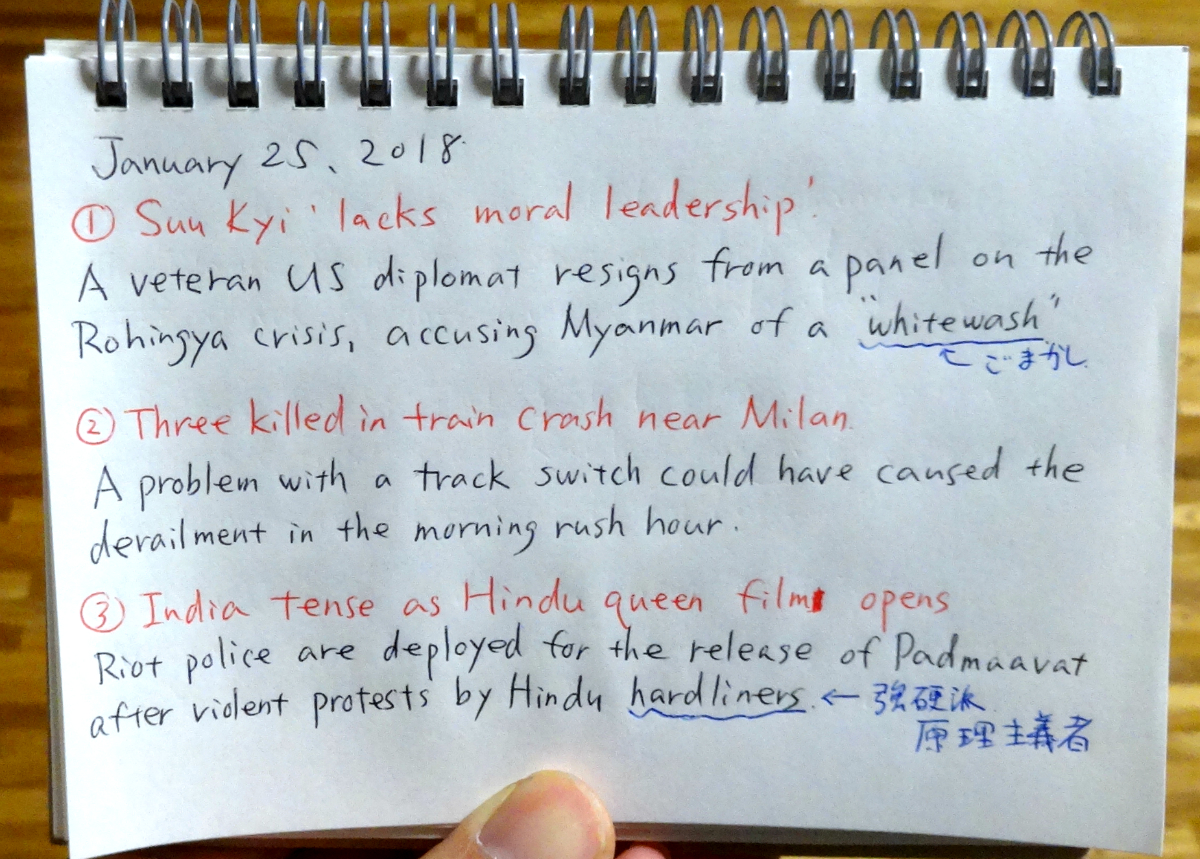 January 25、2018
① Suu Kyi 'lacks moral leadership'
A veteran US diplomat resigns from a panel on the
Rohingya crisis, accusing Myanmar of a "whitewash"
← ごまかし
② Three killed in train crash near Milan.
A problem with a track switch could have caused the
derailment in the morning rush hour.
③ India tense as Hindu queen film opens
Riot police are deployed for the release of Padmaavat
after violent protests by Hindu hardliners. ← 強硬派
原理主義者